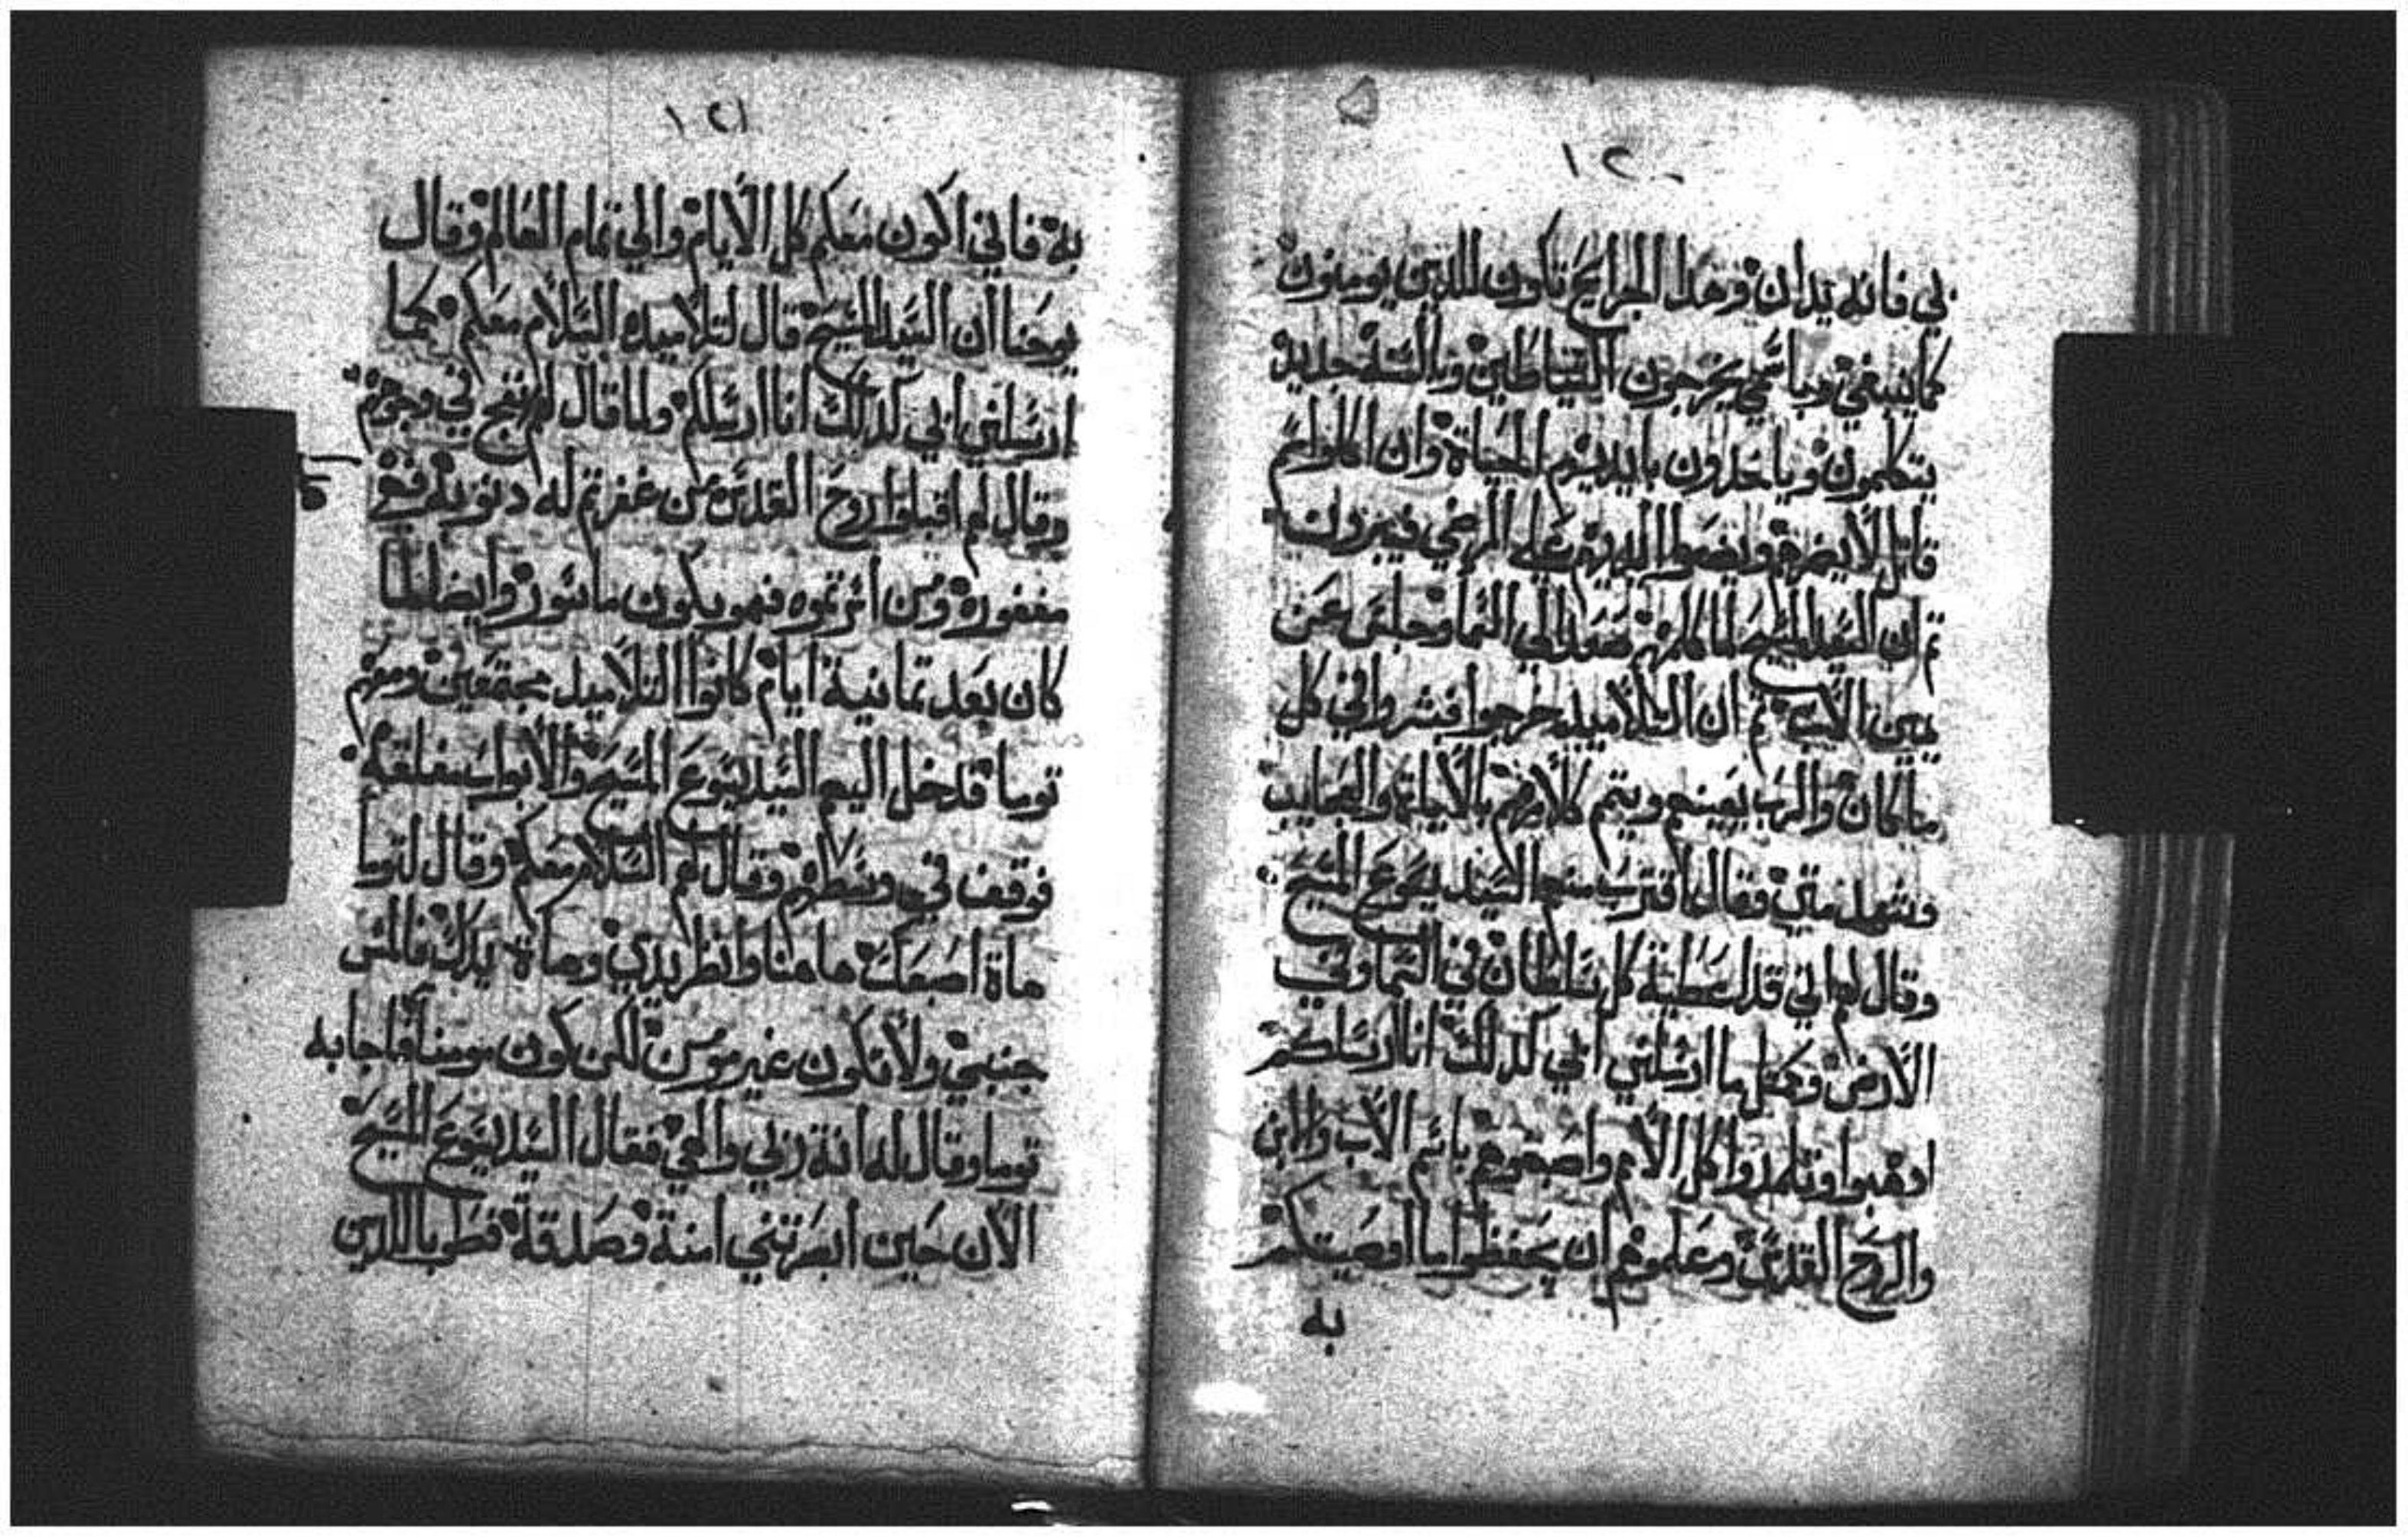 ١٢٠
بي فانه يدان وهذا الجرايح تكون للذين يومنون
كما ينبغي وباسمي يخرجون الشياطين وبالسنه جديده
يتكلمون وياخذون بايديهم الحياة وان اكلوا سم
قاتل لا يضرهم ويضعوا ايديهم علي المرضي فيبرون
ثم ان السيد المسيح لما كلمهم صعد الي السما وجلس عن
يمين الاب ثم ان التلاميذ خرجوا فبشروا في كل
مكان والرب يعينهم ويتم كلامهم بالاياة والعجايب
وشهد متي وقال اقترب منهم السيد يسوع المسيح
وقال لهم اني قد اعطية كل سلطان في السما وفي
الارض وكمثل ما ارسلني ابي كذلك انا ارسلكم
اذهبوا وتلمذوا كل الامم واصبغوهم باسم الاب والابن
والروح القدس وعلموهم ان يحفظوا ما اوصيتكم
به
١٢١
به فاني اكون معكم كل الايام والي تمام العالم وقال
يوحنا ان السيد المسيح قال لتلاميذه السلام معكم كما
ارسلني ابي كذلك انا ارسلكم ولما قال لهم نفخ في وجوههم
وقال لهم اقبلوا روح القدس من غفرتم له دنوبه فهي
مغفوره ومن اثرتموه فهو يكون ماثور وايضا لما
كان بعد تمانية ايام كانوا التلاميذ مجتمعين ومعهم
توما فدخل اليهم السيد يسوع المسيح والابواب مغلقه
فوقف في وسطهم وقال لهم السلام معكم وقال لتوما
هاة اصبعك هاهنا وانظر يدي وهاة يدك فالمس
جنبي ولا تكون غير مومن لكن كون مومنا فاجابه
توما وقال له انة ربي والهي فقال السيد يسوع المسيح
الان حين ابصرتني امنة وصدقة فطوبا للذين